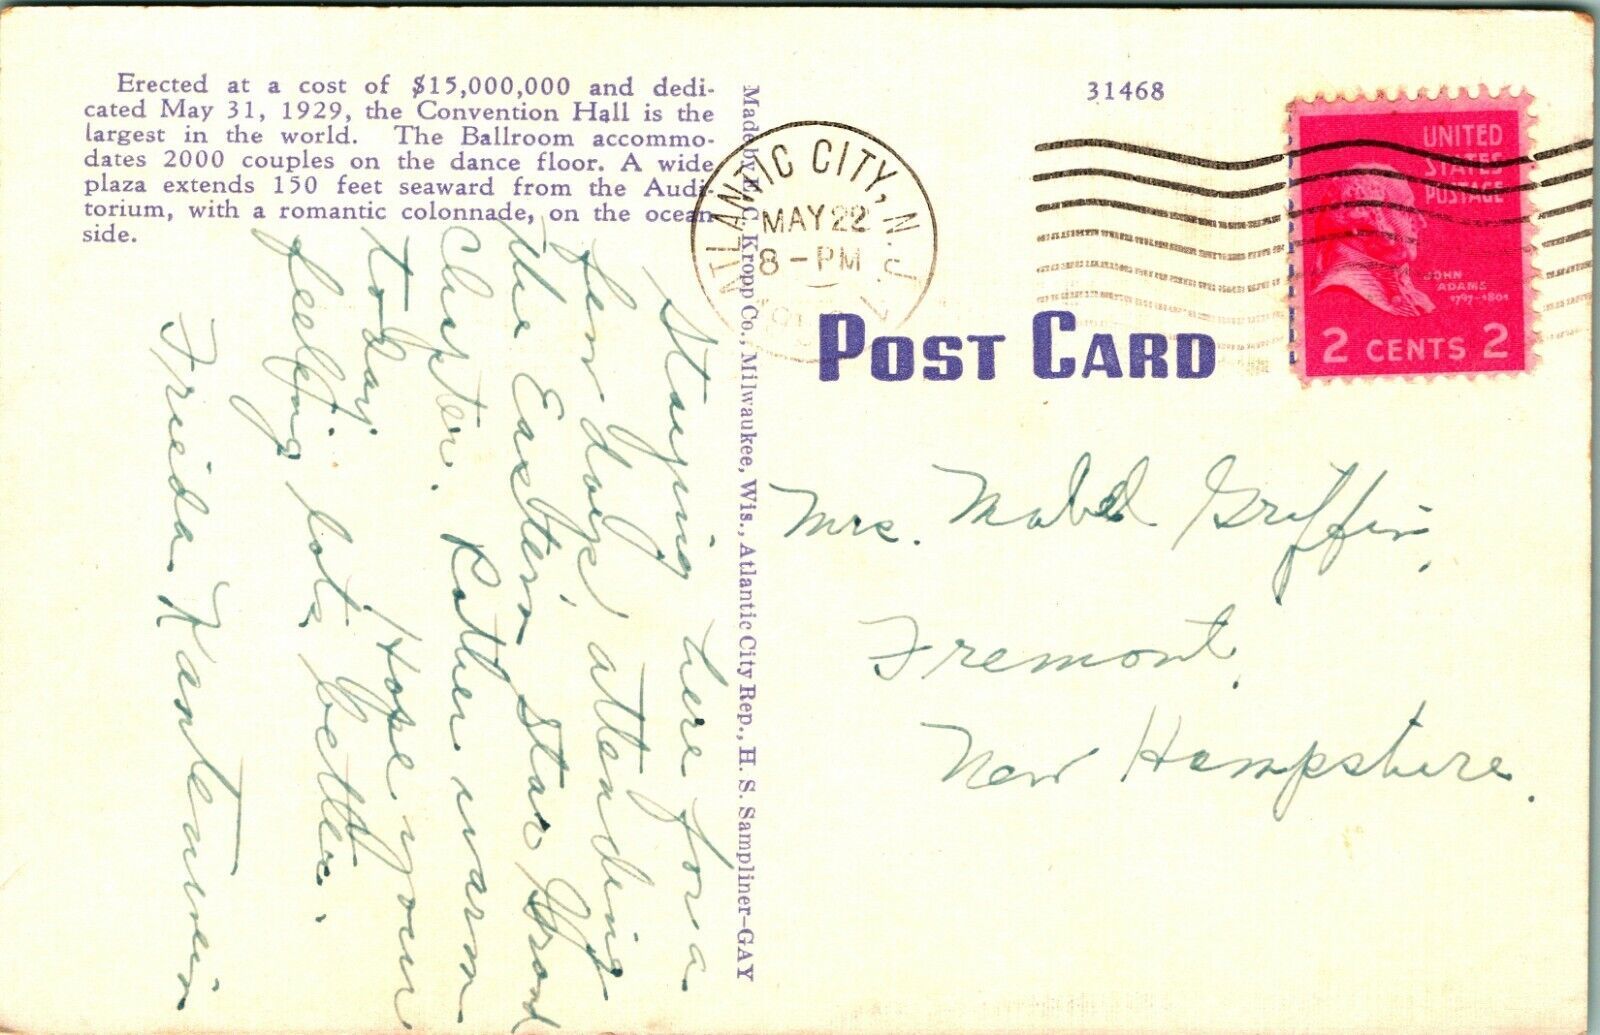 Erected at a cost of $15,000,000 and dedi-
cated May 31, 1929, the Convention Hall is the
largest in the world. The Ballroom accommo-
dates 2000 couples on the dance floor. A wide
plaza extends 150 feet seaward from the Audi-
torium, with a romantic colonnade, on the ocean
side.
Staying here for a
few days, attending
the Eastern Star Grand
Chapter. Rather warm
today. Hope your
feeling lots better.
Frieda
Made by E. C. Kropp Co., Milwaukee, Wis., Atlantic City Rep., H. S. Sampliner-GAY
31468
ATLANTIC CITY, N.J.
MAY 22
8-PM
UNITED
STATES
POSTAGE
JOHN
ADAMS
1797-1801
2 CENTS 2
POST CARD
Mrs. Mabel Griffin,
Fremont,
New Hampshire.